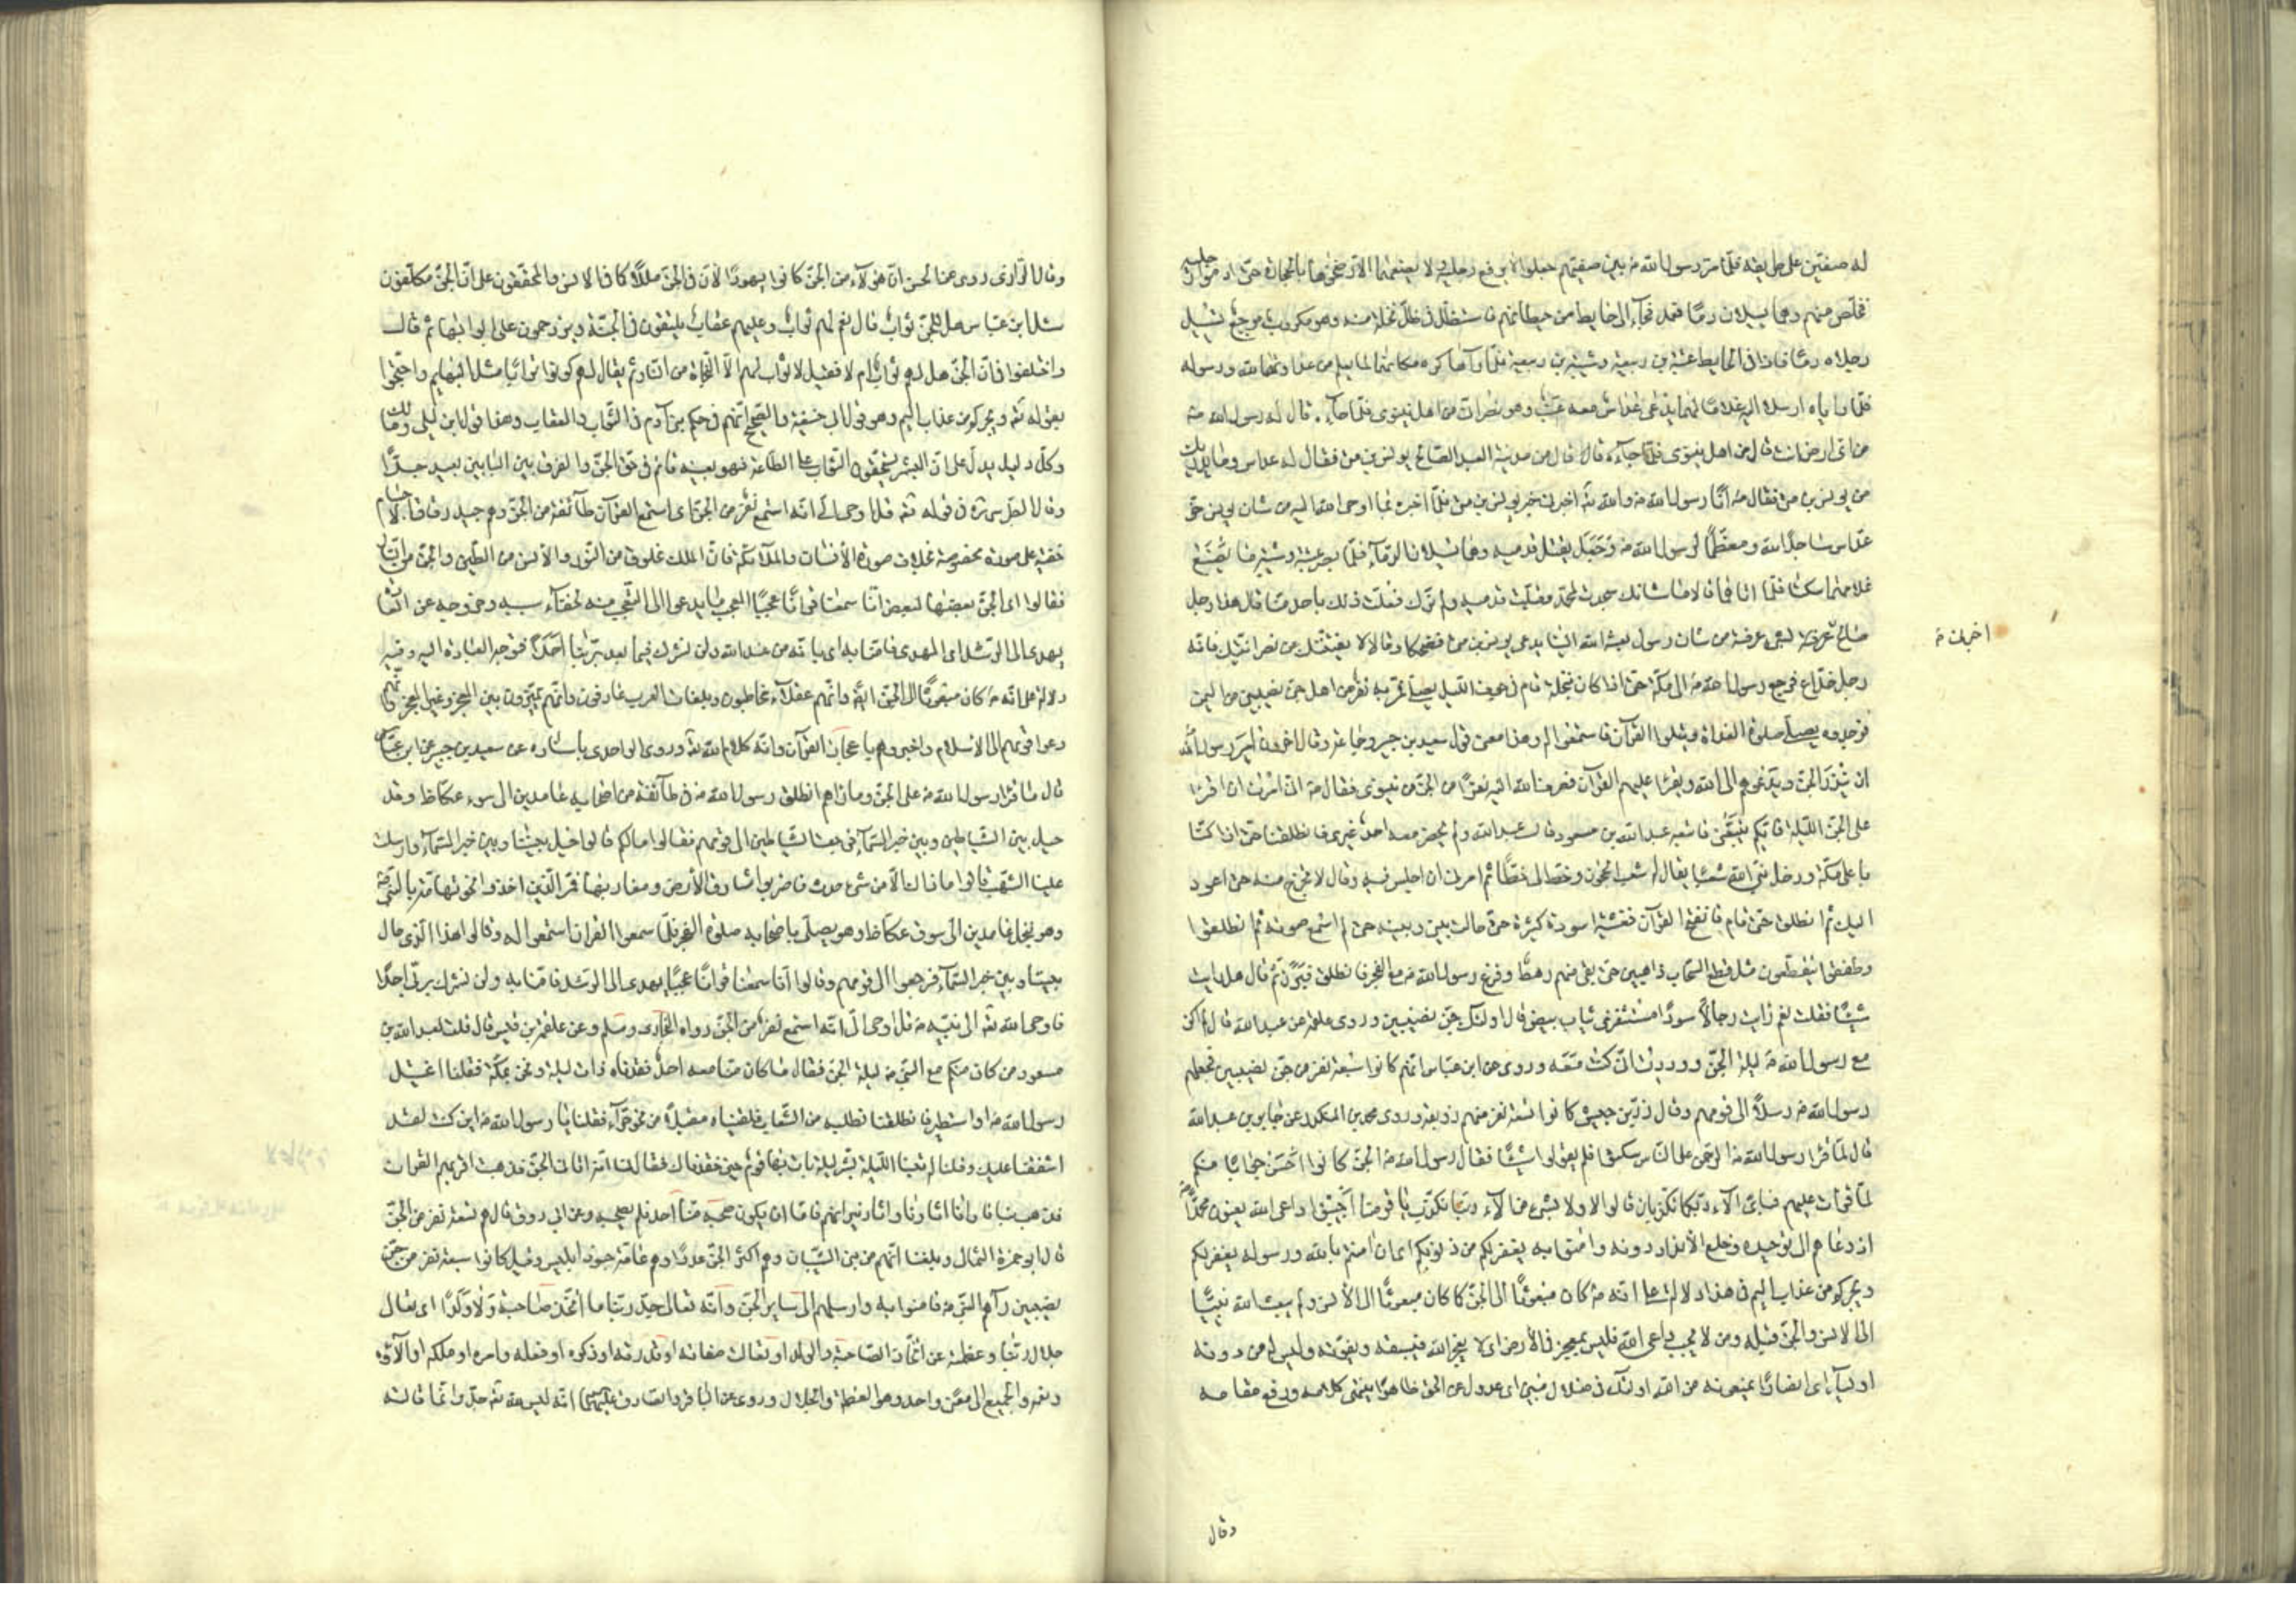 له صفتين على طريقه فلما مر رسول الله ص بين صفيهم جعلوا لا يرفع رجليه ولا يضعهما الا رضخوهما بالحجارة حتى ادموا رجليه
فخلص منهم وهما يسيلان دما فعمد فجاء الى حايط من حيطانهم فاستظل في ظل نخلة منه وهو مكروب موجع تسيل
رجلاه دما فاذا في الحايط عتبة بن ربيعة وشيبة بن ربيعة فلما رآهما كره مكانهما لما يعلم من عداوتهما لله ورسوله
فلما راياه ارسلا اليه غلاما لهما يدعى عداس معه عنب وهو نصراني من اهل نينوى فلما جاءه قال له رسول الله ص
من اى ارض انت قال من اهل نينوى قال من مدينة العبد الصالح يونس بن متى فقال له عداس وما يدريك
من يونس بن متى فقال ص انا رسول الله والله تع اخبرني خبر يونس بن متى فلما اخبره بما اوحى الله اليه من شان يونس خر
عداس ساجدا لله ومعظما لرسول الله ص وجعل يقبل قدميه وهما تسيلان الدماء فلما بصر عتبة وشيبة ما يصنع
غلامهما سكتا فلما اتاهما قالا ما شانك سجدت لمحمد وقبلت قدميه ولم نرك فعلت ذلك باحد منا قال هذا رجل
صالح عرفته بشىء عرفه من شان رسول بعثه الله الينا يدعى يونس بن متى فضحكا وقالا لا يفتننك عن نصرانيتك فانه
اخبرني ص
رجل خداع فرجع رسول الله ص الى مكة حتى اذا كان بنخلة قام في جوف الليل يصلي فمر به نفر من اهل جن نصيبين من اليمن
فوجدوه يصلي صلوة الغداة ويتلوا القرآن فاستمعوا له وهذا معنى قول سعيد بن جبير وجماعة وقال اخرون امر رسول الله
ان ينذر الجن ويدعوهم الى الله ويقرا عليهم القرآن فصرف الله اليه نفرا من الجن من نينوى فقال ص اني امرت ان اقرا
على الجن الليلة فايكم يتبعني فاتبعه عبد الله بن مسعود قال عبد الله ولم يحضر معه احد غيرى فانطلقنا حتى اذا كنا
باعلى مكة ودخل نبي الله شعبا يقال له شعب الحجون وخط لى خطا ثم امرني ان اجلس فيه وقال لا تخرج منه حتى اعود
اليك ثم انطلق حتى قام فافتتح القرآن فغشيته اسودة كثيرة حتى حالت بيني وبينه حتى لم اسمع صوته ثم انطلقوا
وطفقوا يتقطعون مثل قطع السحاب ذاهبين حتى بقى منهم رهط وفرغ رسول الله ص مع الفجر فانطلق فتبرز ثم قال هل رايت
شيئا فقلت نعم رايت رجالا سودا مستثفرى ثياب بيض قال اولئك جن نصيبين وروى علقمة عن عبد الله قال لم اكن
مع رسول الله ص ليلة الجن ووددت اني كنت معه وروى عن ابن عباس انهم كانوا سبعة نفر من جن نصيبين فجعلهم
رسول الله ص رسلا الى قومهم وقال زر بن حبيش كانوا تسعة نفر منهم زوبعة وروى محمد بن المنكدر عن جابر بن عبد الله
قال لما قرا رسول الله ص الرحمن على الناس سكتوا فلم يقولوا شيئا فقال رسول الله ص الجن كانوا احسن جوابا منكم
لما قرات عليهم فباى آلاء ربكما تكذبان قالوا لا ولا بشىء من آلاء ربنا نكذب يا قومنا اجيبوا داعى الله يعنون محمدا ص
اذ دعاهم الى توحيده وخلع الانداد دونه وآمنوا به يغفر لكم من ذنوبكم اى ان آمنتم بالله ورسوله يغفر لكم
ويجركم من عذاب اليم في هذا دلالة على انه ص كان مبعوثا الى الجن كما كان مبعوثا الى الانس ولم يبعث الله نبيا
الى الانس والجن قبله ومن لا يجب داعى الله فليس بمعجز في الارض اى لا يعجز الله فيسبقه ويفوته وليس له من دونه
اولياء اى انصارا يمنعونه من الله اولئك في ضلال مبين اى عدول عن الحق ظاهر انتهى كلامه ورفع مقامه
وقال
وقال الرازى روى عن الحسن ان هؤلاء من الجن كانوا يهودا لان في الجن مللا كما في الانس والمحققون على ان الجن مكلفون
سئل ابن عباس هل للجن ثواب قال نعم لهم ثواب وعليهم عقاب يلتقون في الجنة ويزدحمون على ابوابها ثم قال
واختلفوا في ان الجن هل لهم ثواب ام لا فقيل لا ثواب لهم الا النجاة من النار ثم يقال لهم كونوا ترابا مثل البهايم واحتجوا
بقوله تع ويجركم من عذاب اليم وهو قول ابي حنيفة والصحيح انهم في حكم بني آدم في الثواب والعقاب وهذا قول ابن ابي ليلى ومالك
وكل دليل يدل على ان البشر يستحقون الثواب على الطاعة فهو بعينه قائم في حق الجن والفرق بين البابين بعيد جدا
وقال الطبرسى ره في قوله تع قل اوحى الى انه استمع نفر من الجن اى استمع القرآن طائفة من الجن وهم جيل رقاق الاجسام
خفيفة على صورة مخصوصة بخلاف صورة الانسان والملائكة فان الملك مخلوق من النور والانس من الطين والجن من النار
فقالوا اى الجن بعضها لبعض انا سمعنا قرآنا عجبا العجب ما يدعو الى التعجب منه لخفاء سببه وخروجه عن العادة
يهدى الى الرشد اى الهدى فآمنا به اى بانه من عند الله ولن نشرك فيما بعد بربنا احدا فنوجه العبادة اليه وفيه
دلالة على انه ص كان مبعوثا الى الجن ايضا وانهم عقلاء مخاطبون وبلغات العرب عارفون وانهم يميزون بين المعجز وغير المعجز وانهم
دعوا قومهم الى الاسلام واخبروهم باعجاز القرآن وانه كلام الله تع وروى الواحدى باسناده عن سعيد بن جبير عن ابن عباس
قال ما قرا رسول الله ص على الجن وما رآهم انطلق رسول الله ص في طائفة من اصحابه عامدين الى سوق عكاظ وقد
حيل بين الشياطين وبين خبر السماء فرجعت الشياطين الى قومهم فقالوا ما لكم قالوا حيل بيننا وبين خبر السماء وارسلت
علينا الشهب قالوا ما ذاك الا من شىء حدث فاضربوا مشارق الارض ومغاربها فمر النفر الذين اخذوا نحو تهامة بالنبي ص
وهو بنخل عامدين الى سوق عكاظ وهو يصلي باصحابه صلوة الفجر فلما سمعوا القرآن استمعوا له وقالوا هذا الذى حال
بيننا وبين خبر السماء فرجعوا الى قومهم وقالوا انا سمعنا قرآنا عجبا يهدى الى الرشد فآمنا به ولن نشرك بربنا احدا
فاوحى الله تع الى نبيه ص قل اوحى الى انه استمع نفر من الجن رواه البخارى ومسلم وعن علقمة بن قيس قال قلت لعبد الله بن
مسعود من كان منكم مع النبي ص ليلة الجن فقال ما كان منا معه احد فقدناه ذات ليلة ونحن بمكة فقلنا اغتيل
رسول الله ص او استطير فانطلقنا نطلبه من الشعاب فلقيناه مقبلا من نحو حراء فقلنا يا رسول الله ص اين كنت لقد
اشفقنا عليك وقلنا له بتنا الليلة بشر ليلة بات بها قوم حين فقدناك فقال لنا انه اتاني داعى الجن فذهبت اقرئهم القرآن
فذهب بنا فارانا آثارهم وآثار نيرانهم فاما ان يكون صحبه منا احد فلم يصحبه وعن ابي روق قال هم تسعة نفر من الجن
قال ابو حمزة الثمالى وبلغنا انهم من بني الشيبان وهم اكثر الجن عددا وهم عامة جنود ابليس وقيل كانوا سبعة نفر من جن
نصيبين رآهم النبي ص فآمنوا به وارسلهم الى ساير الجن وانه تعالى جد ربنا ما اتخذ صاحبة ولا ولدا اى تعالى
جلال ربنا وعظمته عن اتخاذ الصاحبة والولد او تعالت صفاته او قدرته او ذكره او فعله وامره او ملكه او آلاؤه
ونعمه والجميع الى معنى واحد وهو العظمة والجلال وروى عن الباقر والصادق عليهما السلام انه ليس لله تع جد وانما قالته